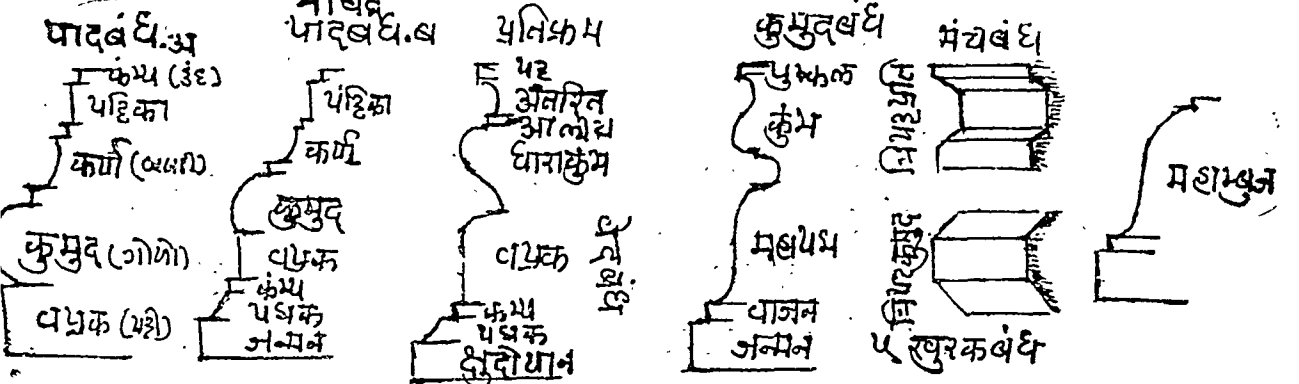 पादबंध.अ
कंम्प (उंध)
पट्टिका
कर्ण
कुमुद (गोपो)
वप्रक (पट्टी)
पादबंध.ब
पट्टिका
कर्ण
कुमुद
वप्रक
कंम्प
पद्मक
जन्मन
प्रतिक्रम
पट
अंतरित
आलींग
धाराकुंभ
वप्रक
कम्प
पद्मक
क्षुद्रोपान
कुमुदबंध
पुष्कल
कुंभ
महापद्म
वाजन
जन्मन
मंचबंध
त्रिपट्टप्रति
त्रिपटकुमुद
५ खुरकबंध
महाम्बुज